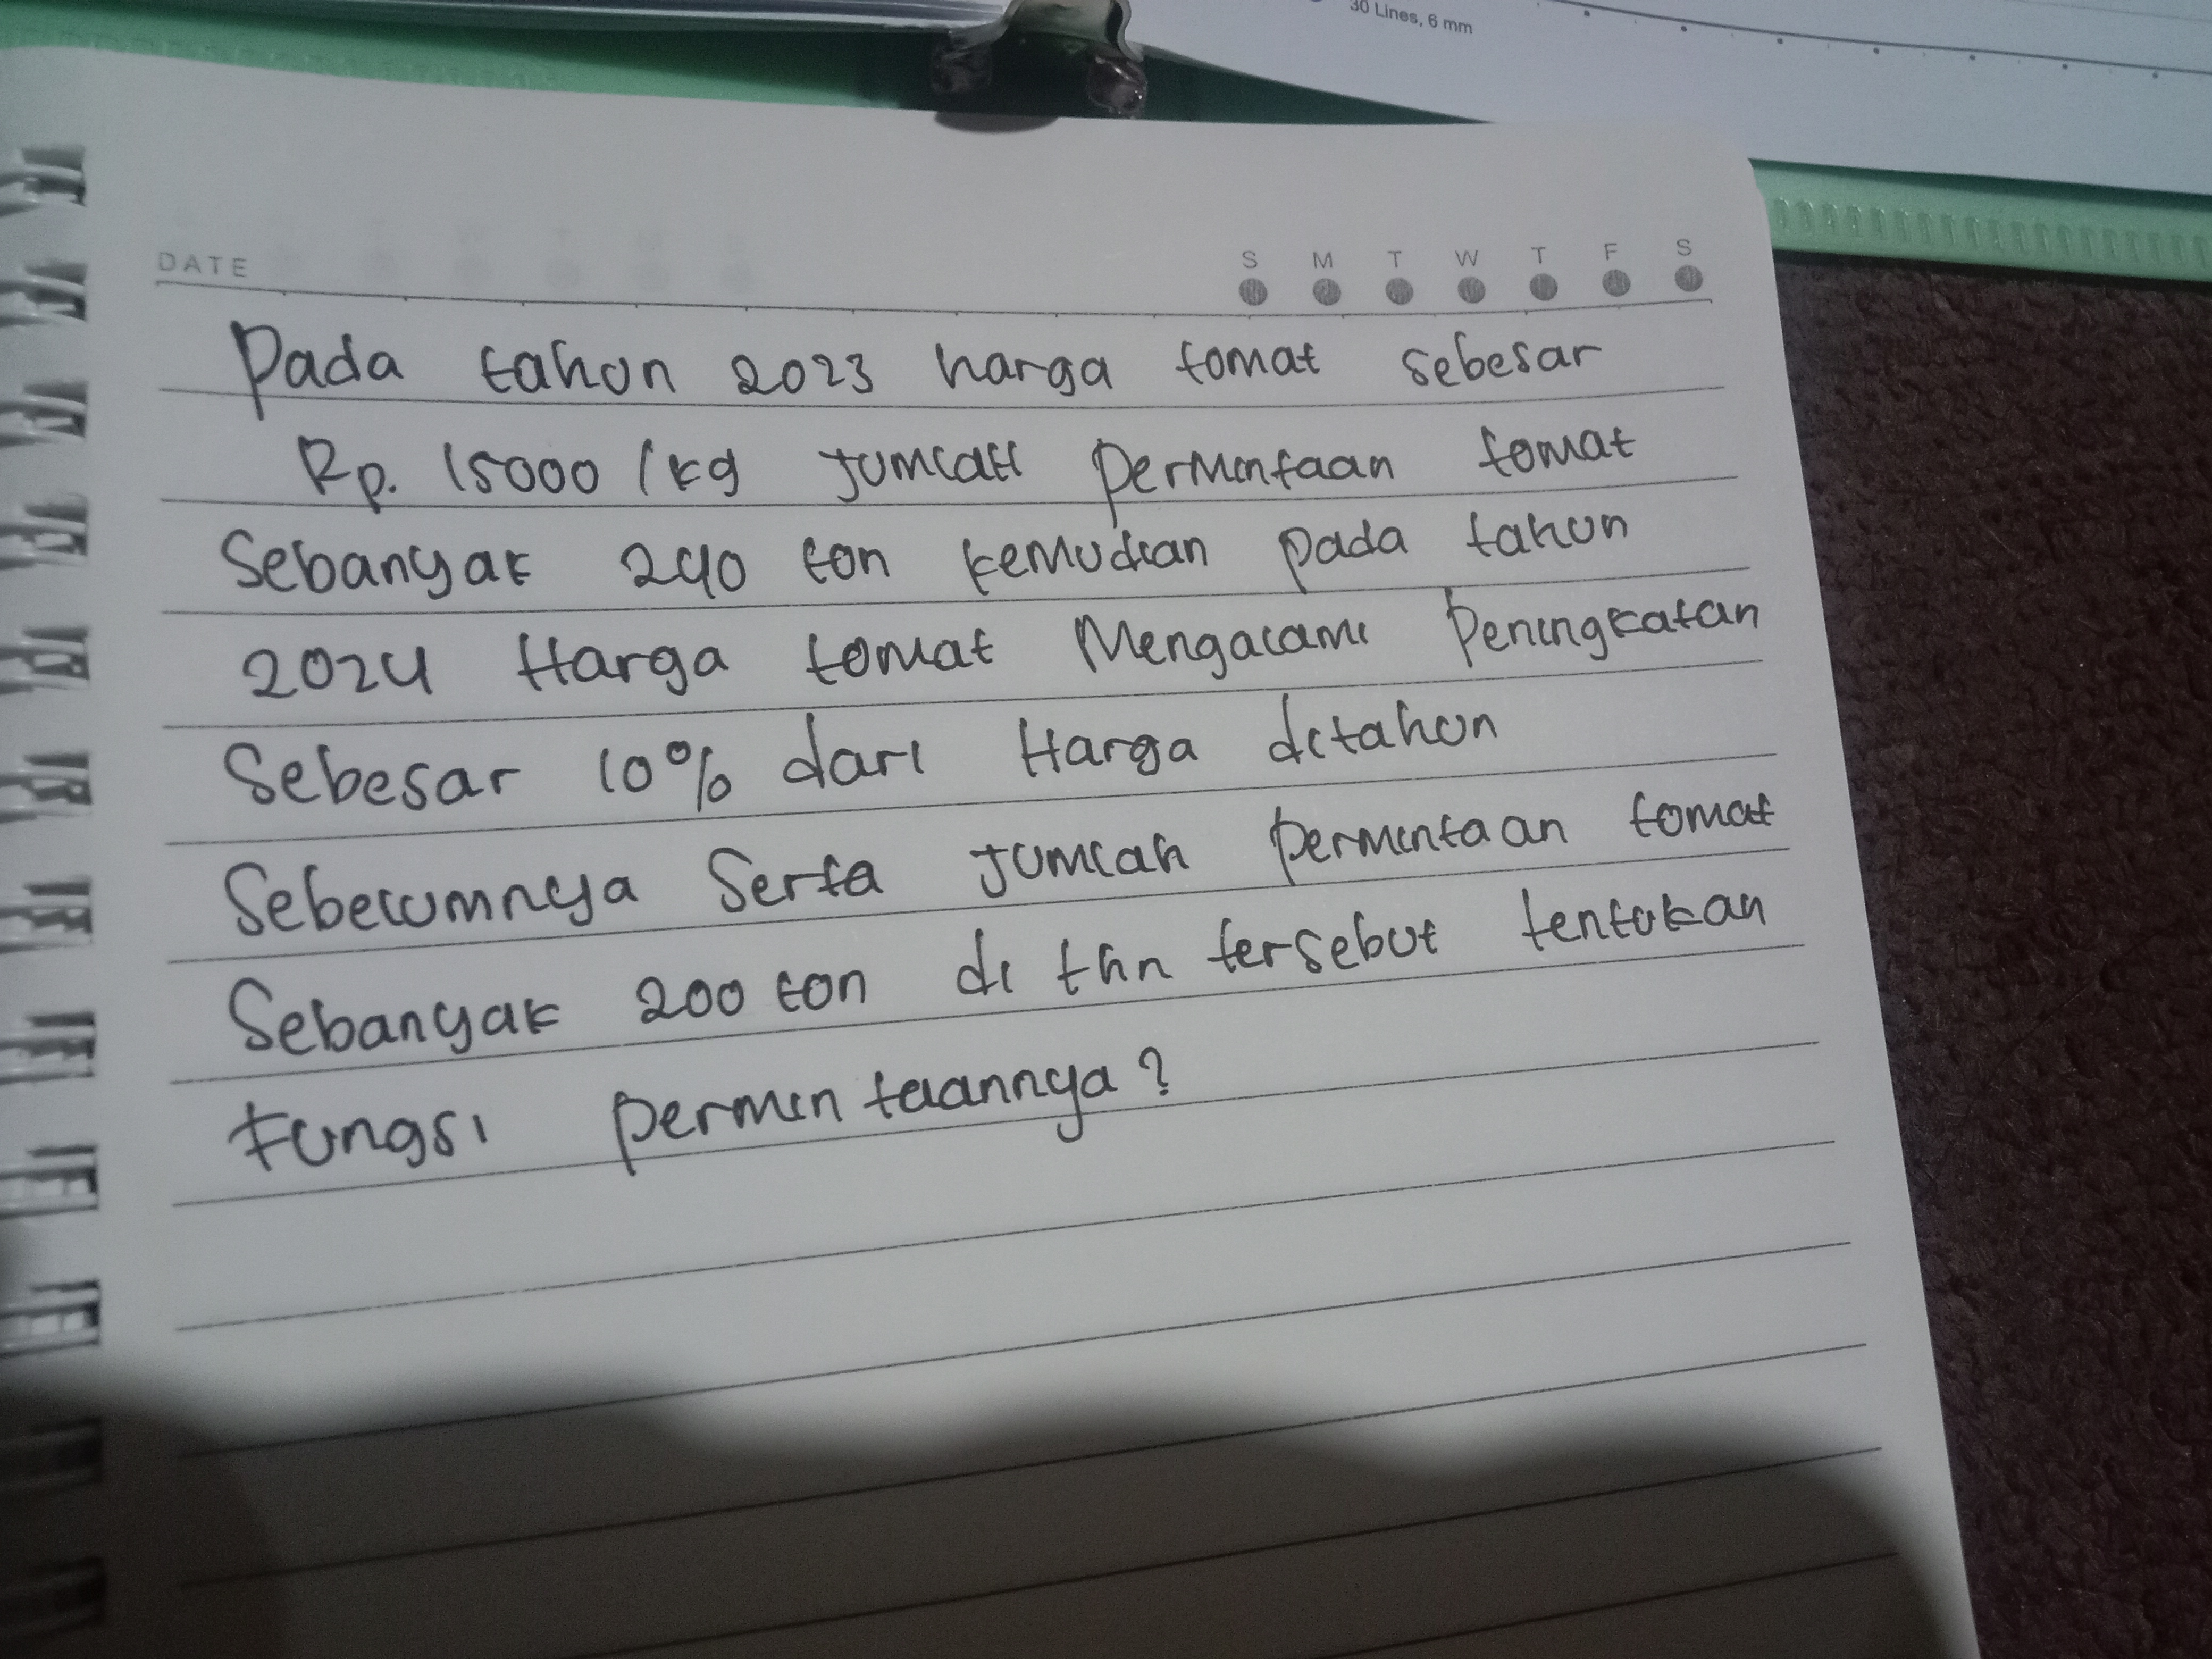 30 Lines, 6 mm
DATE S M T W T F S
Pada tahun 2023 harga tomat sebesar
Rp. 15000 /kg Jumlah permintaan tomat
Sebanyak 240 ton kemudian pada tahun
2024 Harga tomat Mengalami Peningkatan
Sebesar 10% dari Harga ditahun
Sebelumnya Serta Jumlah permintaan tomat
Sebanyak 200 ton di thn tersebut tentukan
Fungsi permintaannya?